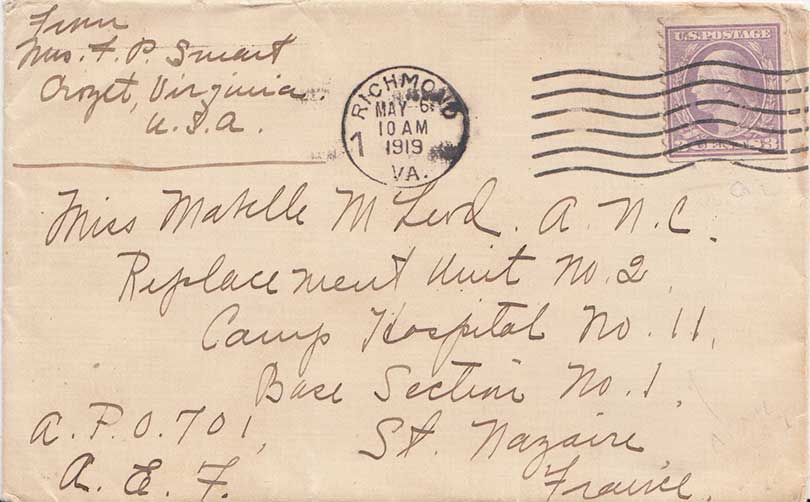 From
Mrs. F. P. Smart
Crozet, Virginia.
U.S.A.
RICHMOND
MAY 6
10 AM
1
1919
VA.
U.S. POSTAGE
3 CENTS 3
Miss Matelle McLeod. A. N. C.
Replacement Unit No. 2,
Camp Hospital No. 11,
Base Section No. 1,
A. P. O. 701, St. Nazaire,
A. E. F. France.